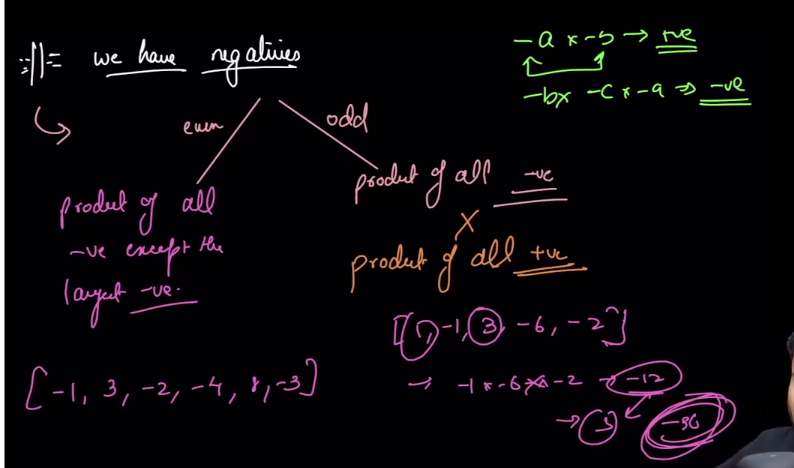 we have negatives
-a x -b → +ve
-b x -c x -a ⇒ -ve
even
odd
product of all
-ve except the
largest -ve.
product of all -ve
X
product of all +ve
[1, -1, 3, -6, -2]
→ -1 x -6 x -2 → -12
→ 3 -36
[-1, 3, -2, -4, 8, -3]